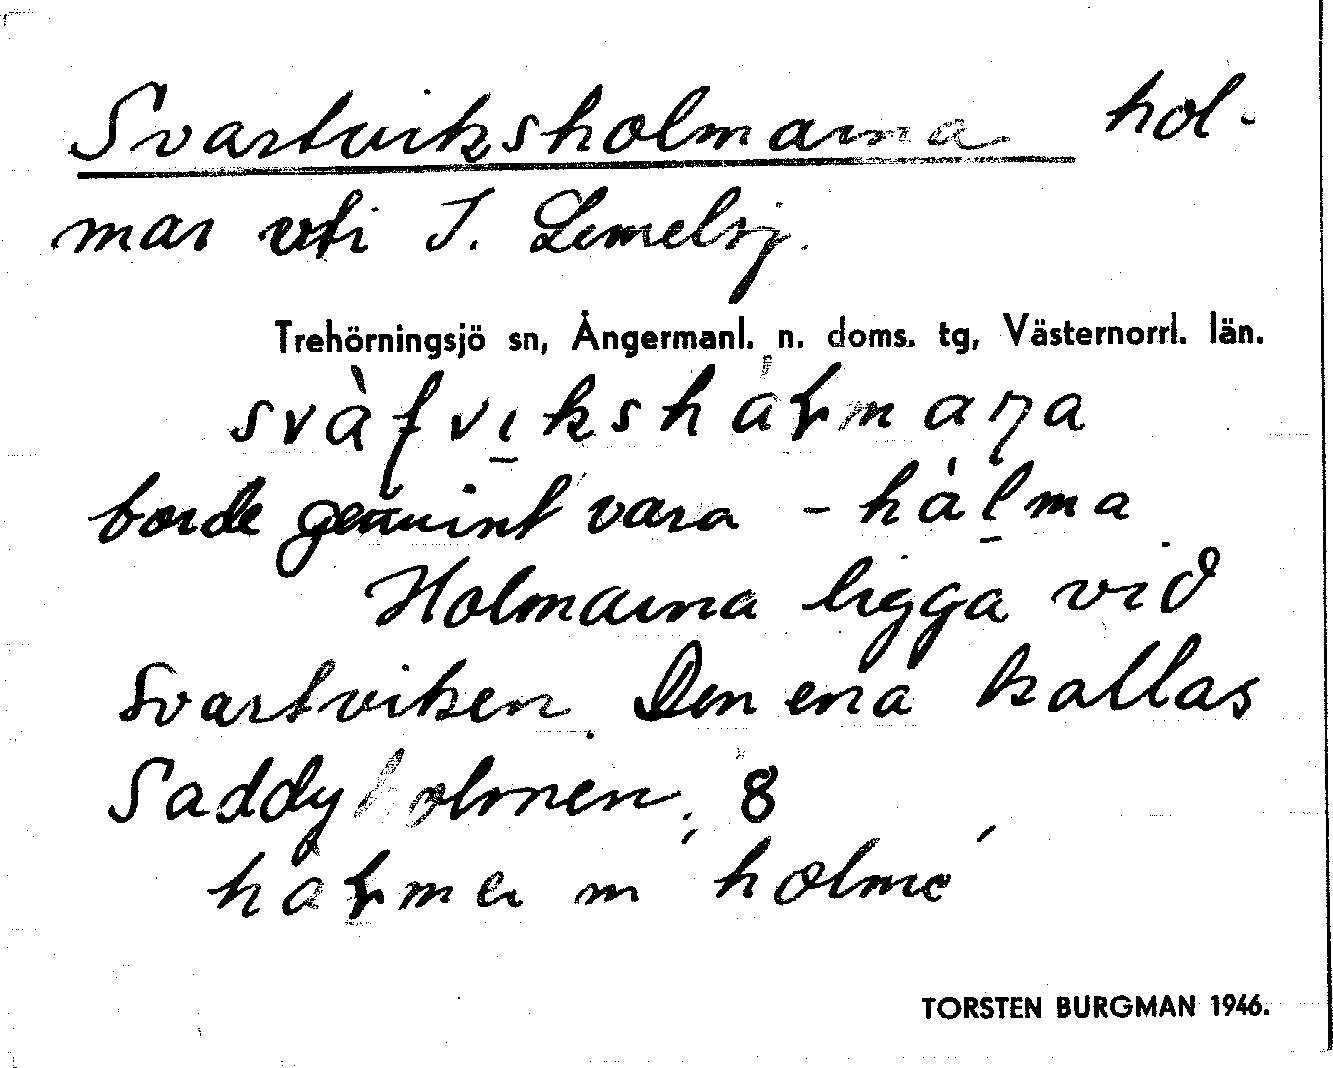 Svartviksholmarna hol-
mar uti T. Lemelsj.
Trehörningsjö sn, Ångermanl. n. doms. tg, Västernorrl. län.
svàfviksháɫmaꞃa
borde genuint vara - hàlma
Holmarna ligga vid
Svartviken. Den ena kallas
Saddyholmen, 8
hàɫmen m holme
TORSTEN BURGMAN 1946.